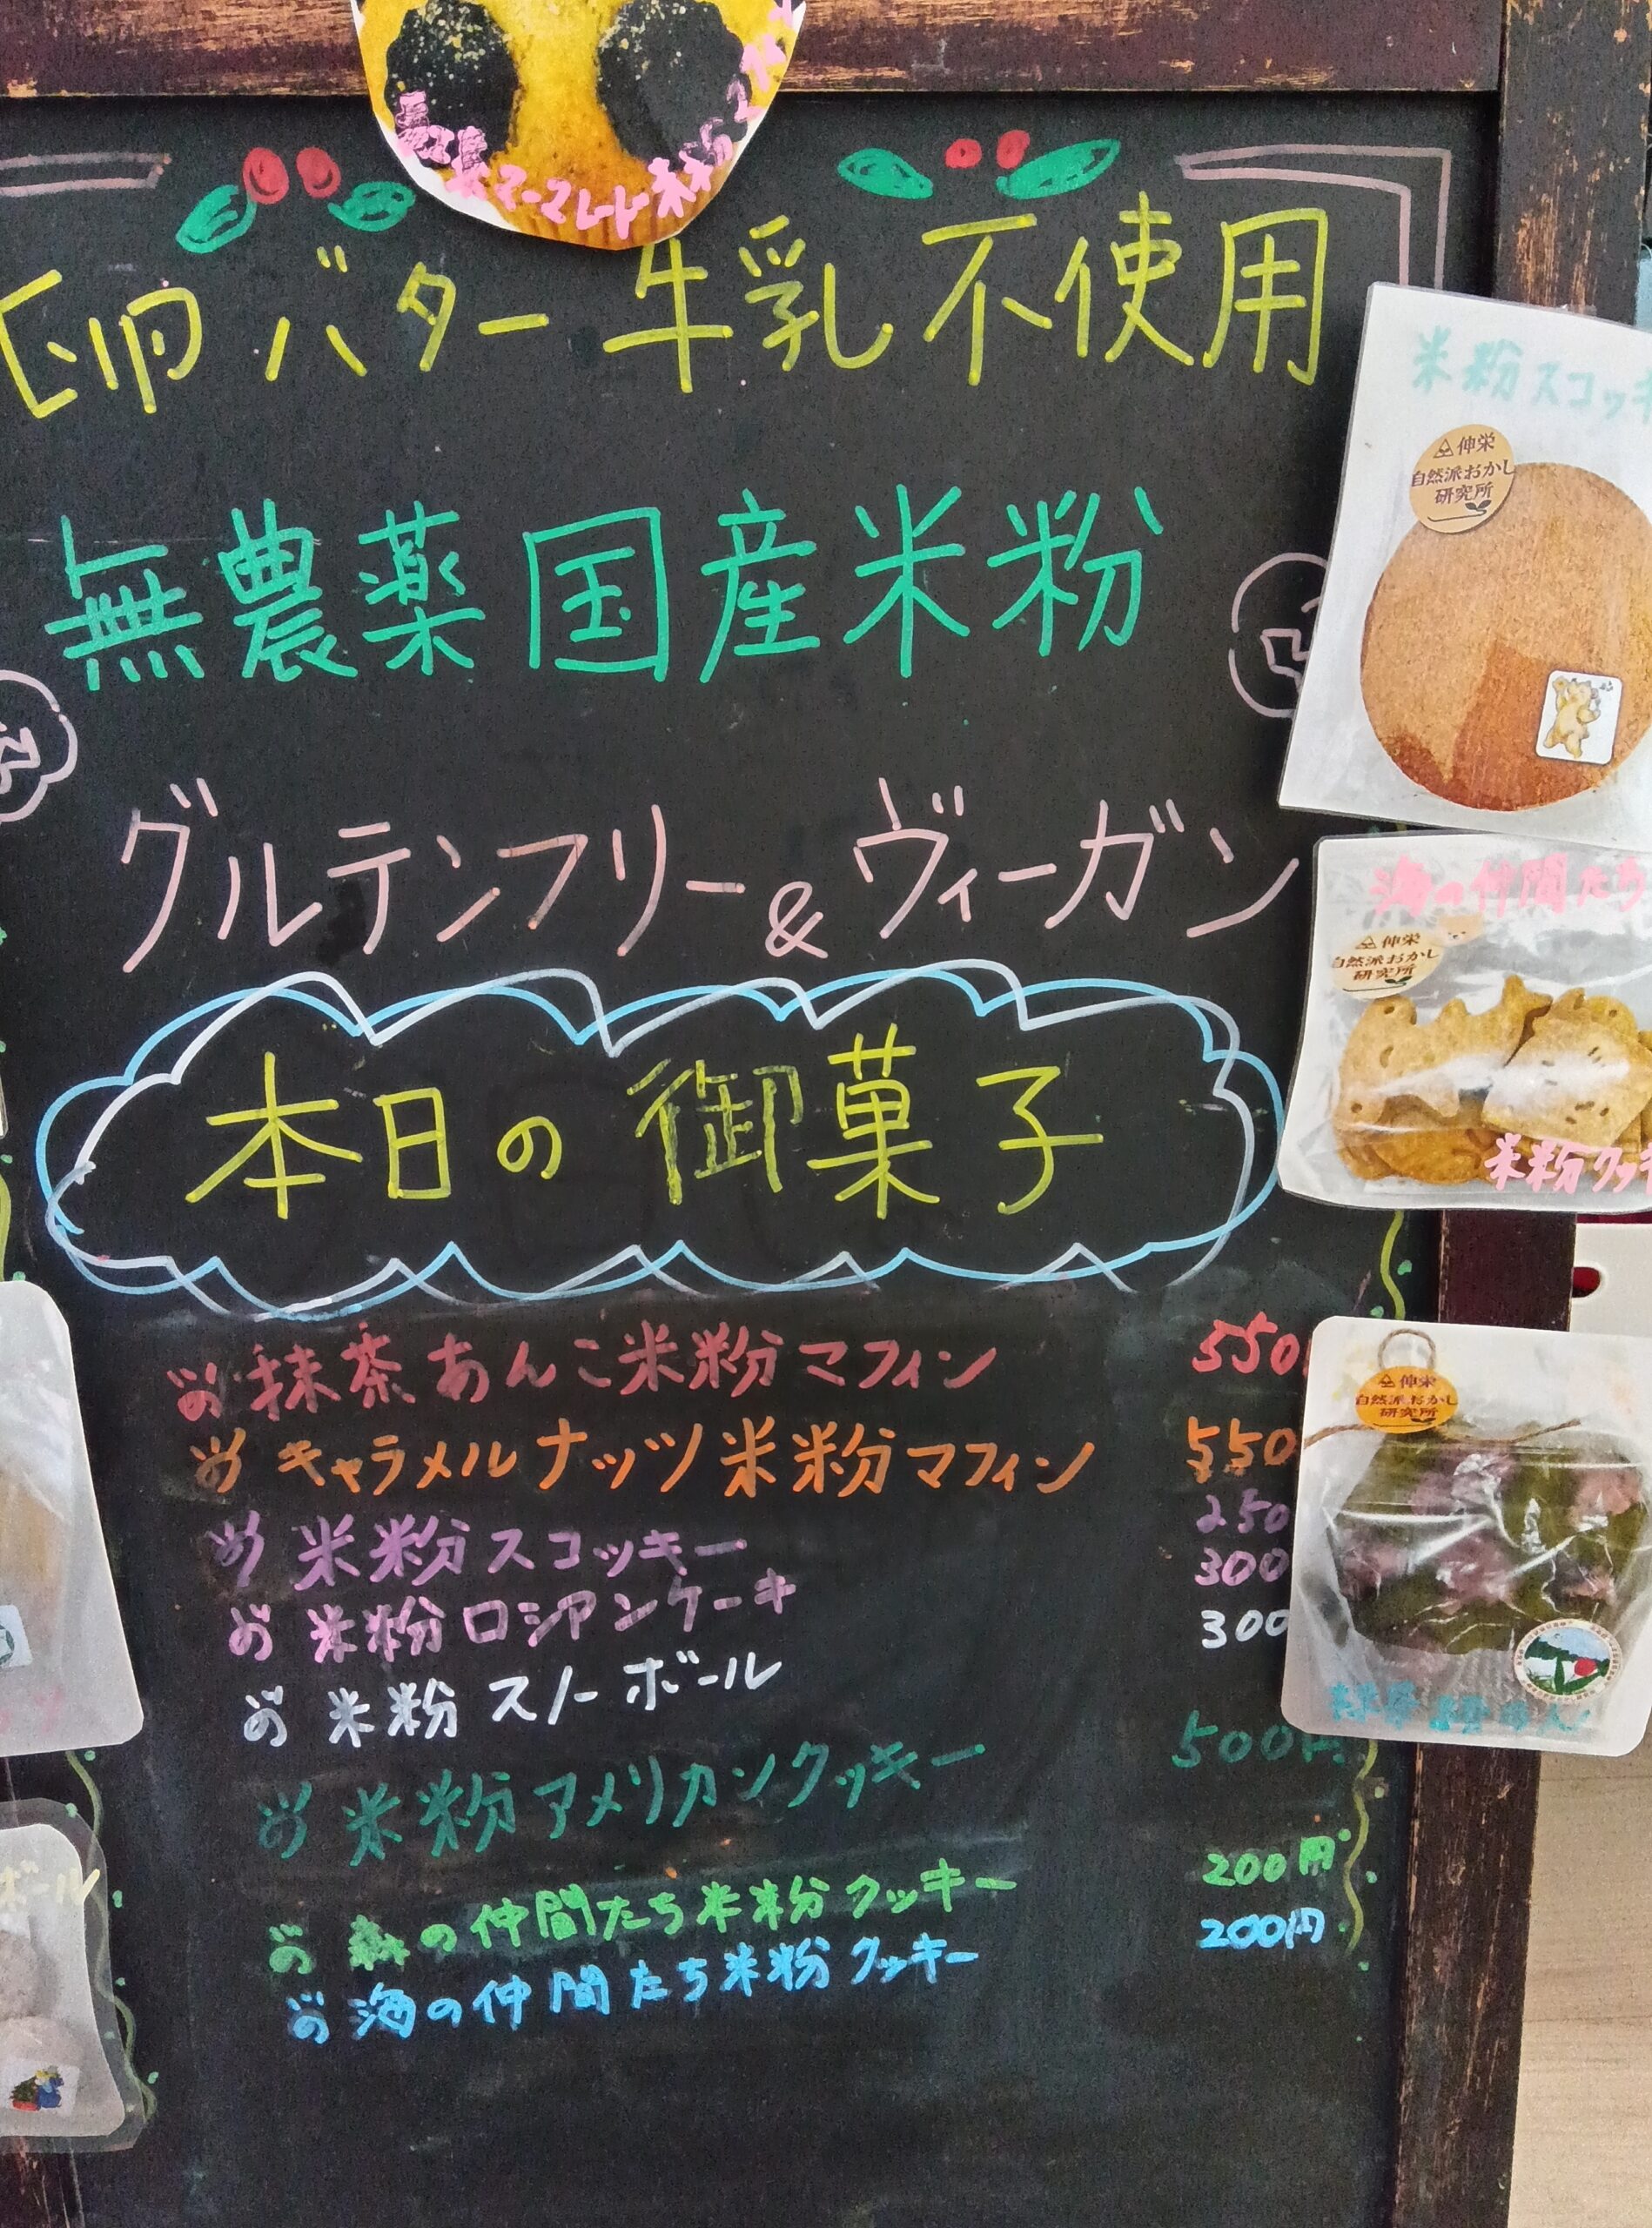 マーマレード
卵 バター 牛乳 不使用
無農薬国産米粉
グルテンフリー&ヴィーガン
本日の御菓子
抹茶あんこ米粉マフィン 550
キャラメルナッツ米粉マフィン 550
米粉スコッキー 250
米粉ロシアンケーキ 300
米粉スノーボール 300
米粉アメリカンクッキー 500円
森の仲間たち米粉クッキー 200円
海の仲間たち米粉クッキー 200円
米粉スコッキ
伸栄
自然派おかし
研究所
海の仲間たち
伸栄
自然派おかし
研究所
米粉クッキ
伸栄
自然派おかし
研究所
ボール